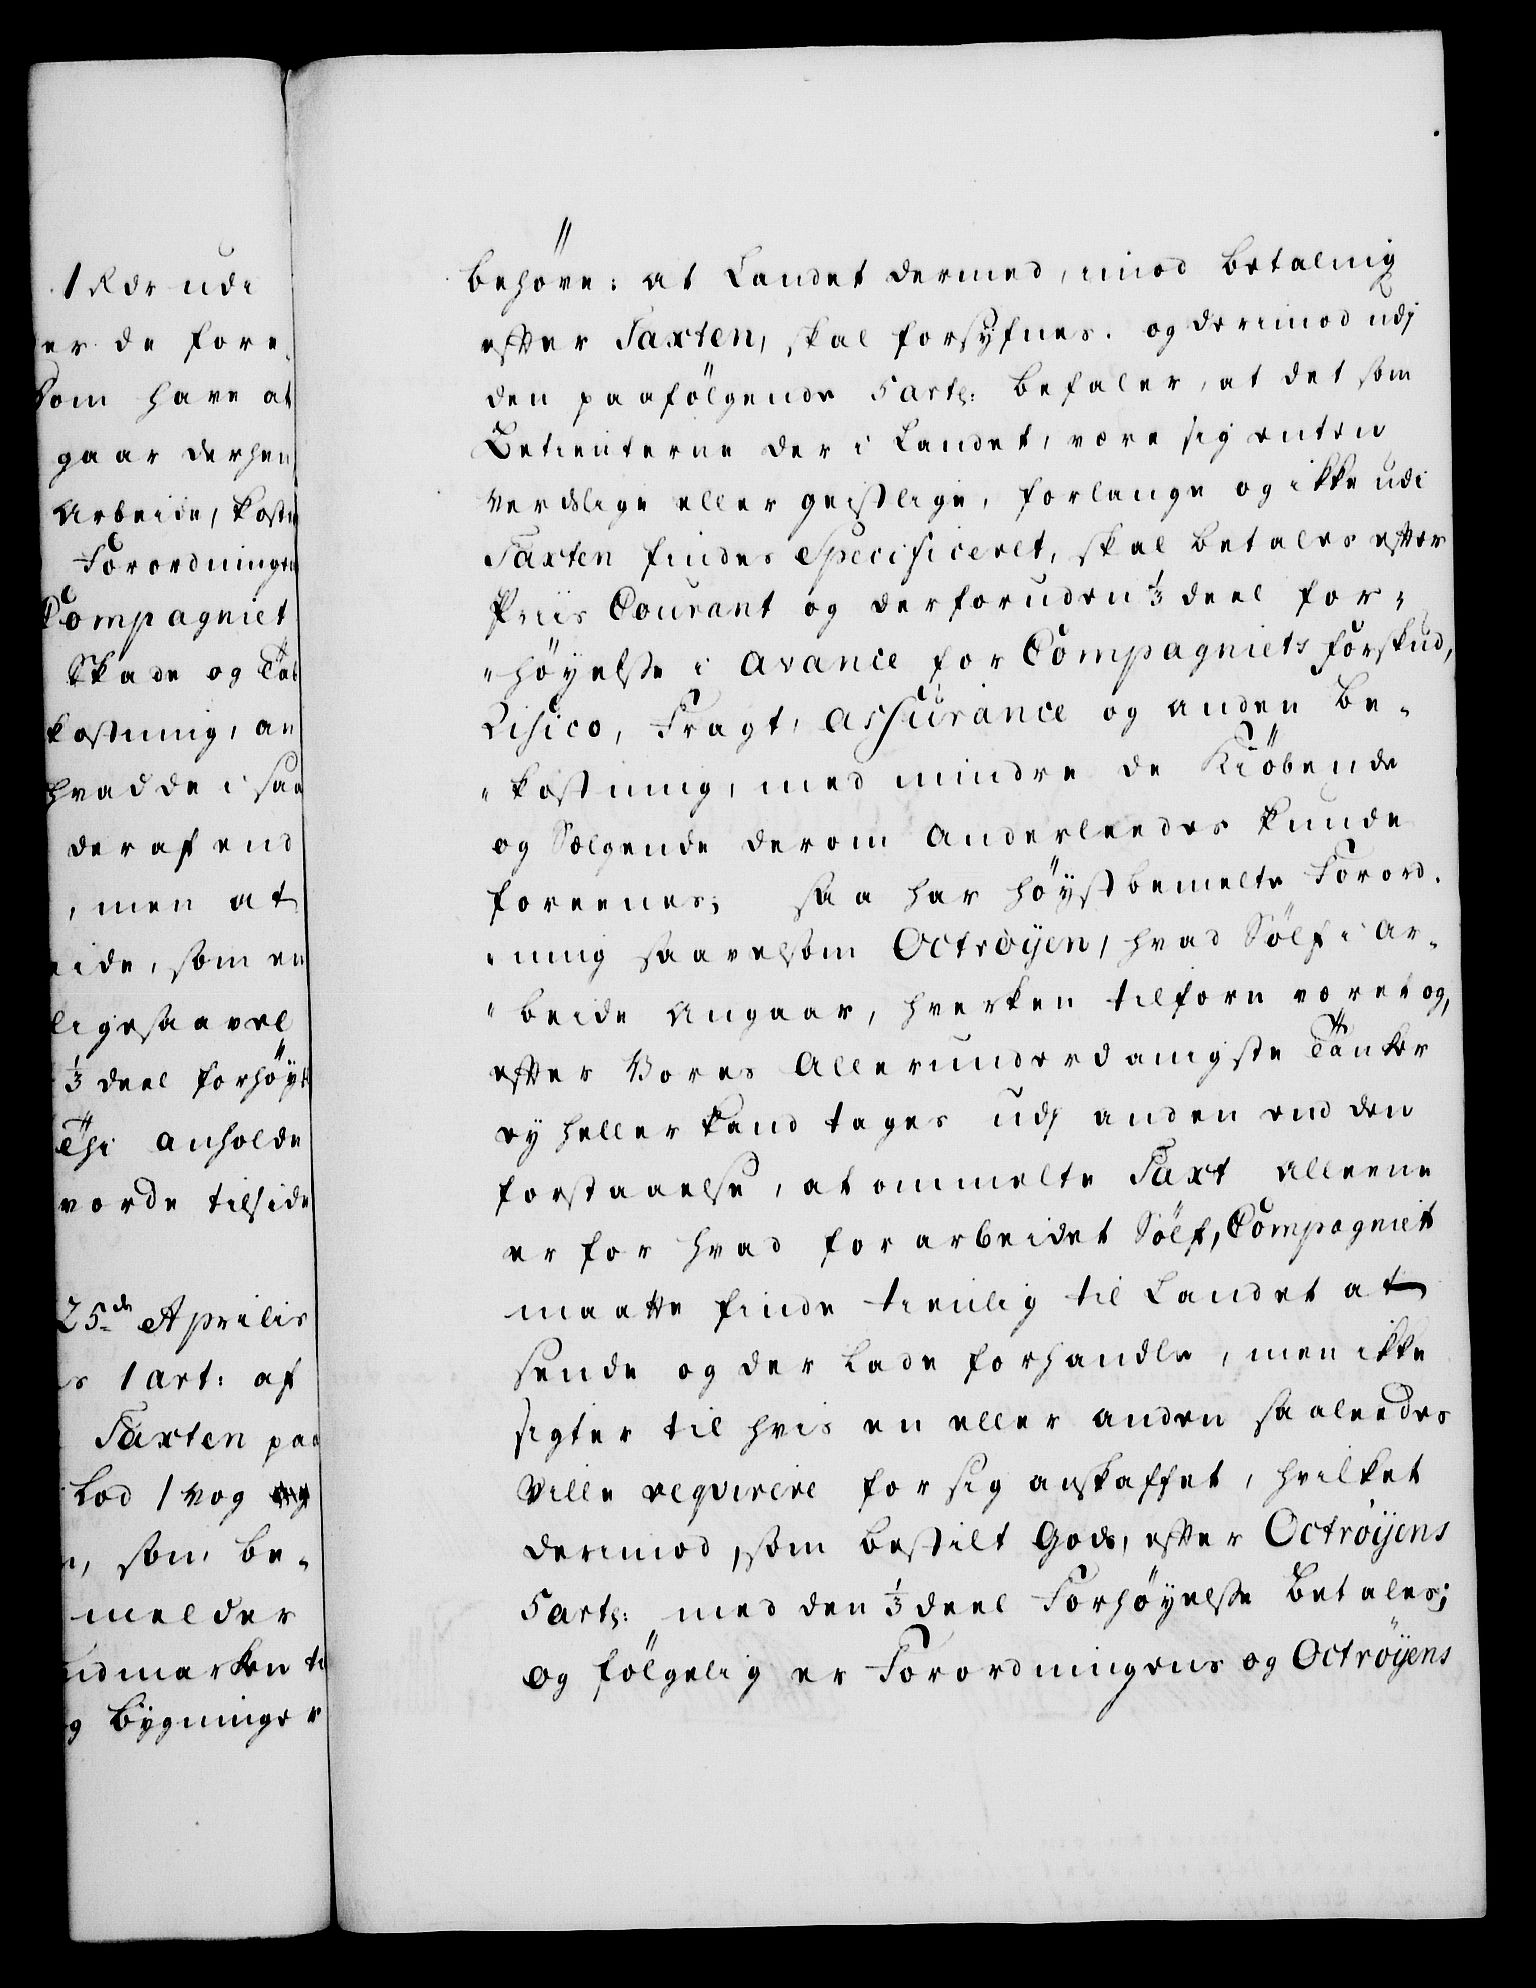 1 Rdr udi
er de fore
som have at
gaar derhen
Arbeide, kost
Forordningen
Compagniet
Skade og Tab
kostning, an
hvad de i saa
deraf end
, men at
eide, som en
ligesaavel
1/3 deel forhöyt
Thi anholde
vorde tilside
25de Aprilis
s 1 Art: af
Taxten paa
Lod 1 vog
n, som be-
melder
indmarken ti
g bygninger
behöve: at Landet dermed, imod betalning
efter Taxten, skal forsyfnes. og derimod udj
den paafölgende 5 artl: befaler, at det som
Betienterne der i Landet, være sig enten
Verdslige eller geistlige, forlange og ikke udi
Taxten findes Specificeret, skal betales efter
Priis Courant og derforuden 1/3 deel for-
"höyelse i Avance for Compagniets forskud,
Risico, Fragt, Assurance og anden be-
"kostning, med mindre de Kiöbende
og Sælgende derom anderleedes kunde
foreenes; saa har höystbemelte Forord-
"ning saavelsom Octröyen, hvad Sölf i Ar-
"beide Angaar, hverken tilforn været og,
efter Vores Allerunderdanigste Tanker
ey heller kand tages udj anden end den
forstaaelse, at ommelte Taxt alleene
er for hvad forarbeidet Sölf, Compagniet
maatte finde tienlig til Landet at
sende og der lade forhandle, men ikke
sigter til hvis en eller anden saaleedes
Ville reqvirere for sig anskaffet, hvilket
derimod, som bestilt Gods, efter Octröyens
5 artl: med den 1/3 deel Forhöyelse betales;
og fölgelig er Forordningens og Octröyens